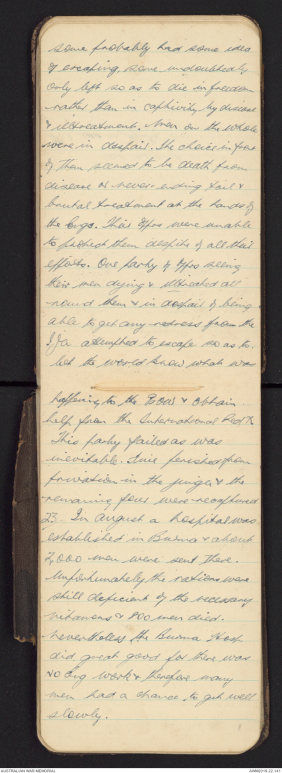 some probably had some idea
of escaping, some undoubtedly
only left so as to die in freedom
rather than in captivity by disease
& illtreatment. Men on the whole
were in despair. The choice in front
of them seemed to be death from
disease or never ending toil &
brutal treatment at the hands of
the Engs. Their Offrs were unable
to protect them despite of all their
efforts. One party of Offrs seeing
their men dying & illtreated all
round them & in despair of being
able to get any redress from the
IJA attempted to escape so as to
let the world know what was
happening to the POW & obtain
help from the International Red X.
This party failed as was
inevitable. Five perished from
privation in the jungle & the
remaining four were recaptured
23. In August a hospital was
established in Burma & about
2,000 men were sent there.
Unfortunately the rations were
still deficient of the necessary
vitamens & 800 men died.
Nevertheless the Burma Hosp
did great good for there was
no Eng work & therefore many
men had a chance to get well
slowly.
AUSTRALIAN WAR MEMORIAL